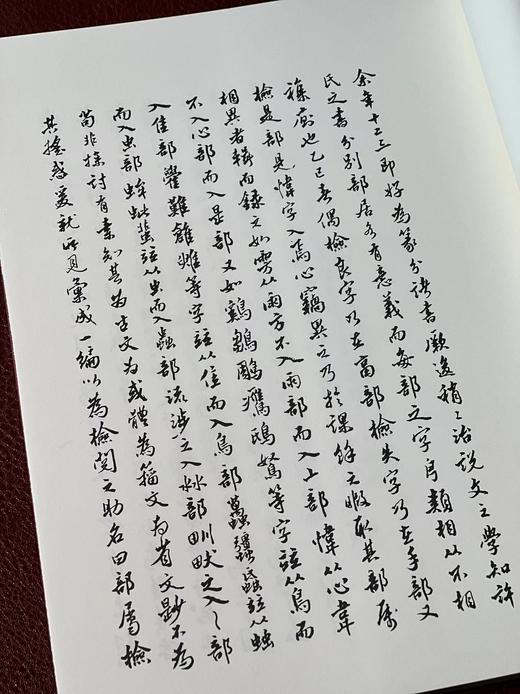 余年十二三即好為篆分诸書厥後稍〻治說文之學知許
氏之書分別部居各有意義而每部之字自類相从不相
雜廁也乙巳春偶檢良字乃在畗部檢失字乃在手部又
檢是部見愇字入焉心竊異之乃於課餘之暇取其部属
相異者輯而錄之如雱从雨方不入雨部而入丄部愇从心韋
不入心部而入是部又如鷄鶵鵰鴟等字竝从鳥而
入隹部難等字竝从隹而入鳥部竝从䖵
而入虫部蛑蚍蜚竝从虫而入䖵部流涉之入沝部甽畎之入〈部
苟非探討有素知其為古文為或體為籀文為省文尟不為
其搖惑爰就所見彙成一編以為檢閱之助名曰部屬檢